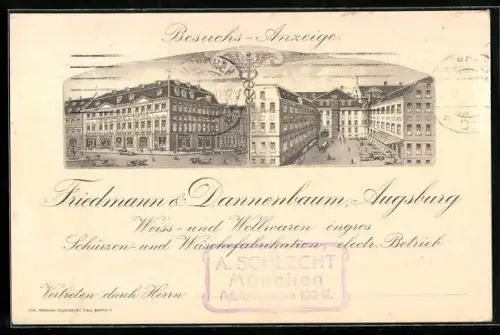 Besuchs-Anzeige.
Friedmann & Dannenbaum, Augsburg
Weiss- und Wollwaren engros
Schürzen- und Wäschefabrikation, electr. Betrieb
A. SCHLECHT
München
102 II.
Vertreten durch Herrn